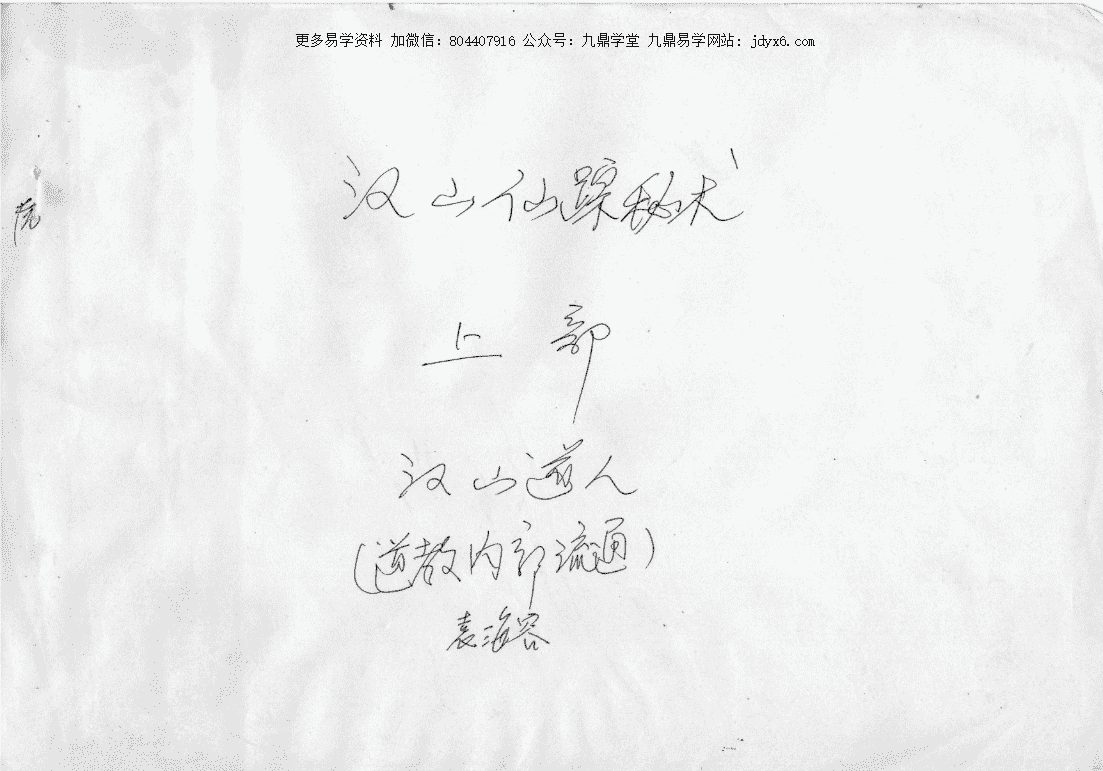 更多易学资料 加微信：804407916 公众号：九鼎学堂 九鼎易学网站：jdyx6.com
汉山仙踪秘术
上部
汉山道人
(道教内部流通)
袁海容